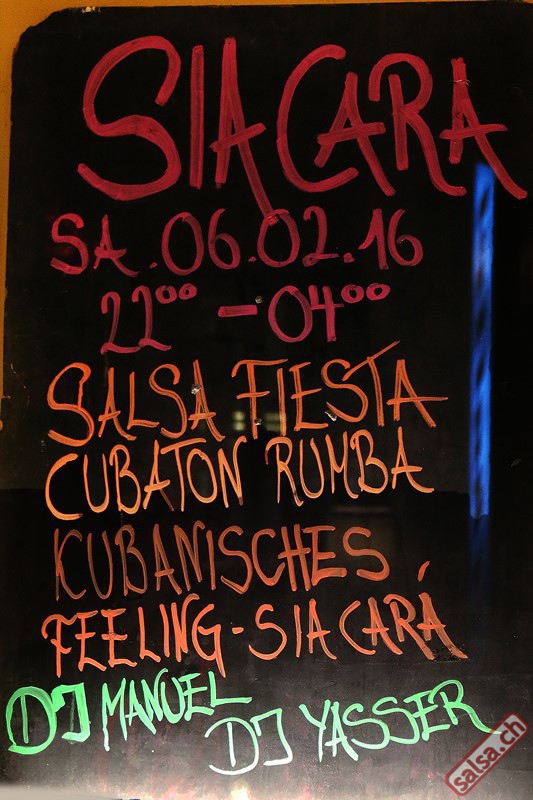 SIA CARA
SA. 06.02.16
22⁰⁰ - 04⁰⁰
SALSA FIESTA
CUBATON RUMBA
KUBANISCHES
FEELING - SIA CARÁ
DJ MANUEL
DJ YASSER
salsa.ch